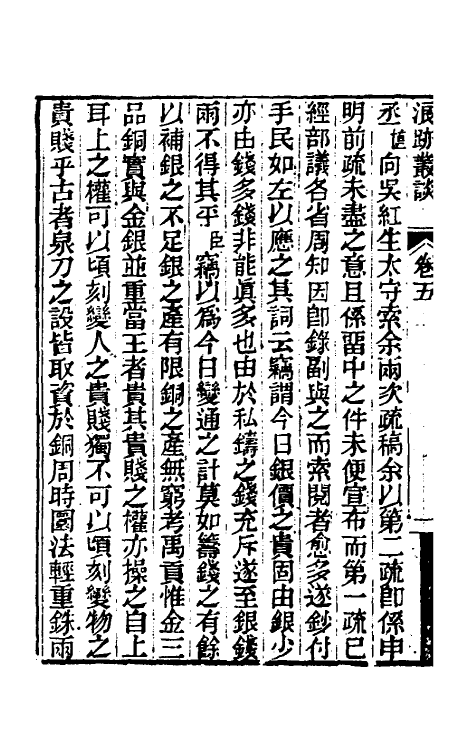 浪跡叢談 卷五
丞 向吳紅生太守索余兩次疏稿余以第二疏卽係申
明前疏未盡之意且係留中之件未便宣布而第一疏已
經部議各省周知因卽錄副與之而索閱者愈多遂鈔付
手民如左以應之其詞云竊謂今日銀價之貴固由銀少
亦由錢多錢非能眞多也由於私鑄之錢充斥遂至銀錢
兩不得其平臣竊以爲今日變通之計莫如籌錢之有餘
以補銀之不足銀之產有限銅之產無窮考禹貢惟金三
品銅實與金銀並重當王者貴其貴賤之權亦操之自上
耳上之權可以頃刻變人之貴賤獨不可以頃刻變物之
貴賤乎古者泉刀之設皆取資於銅周時圜法輕重銖兩